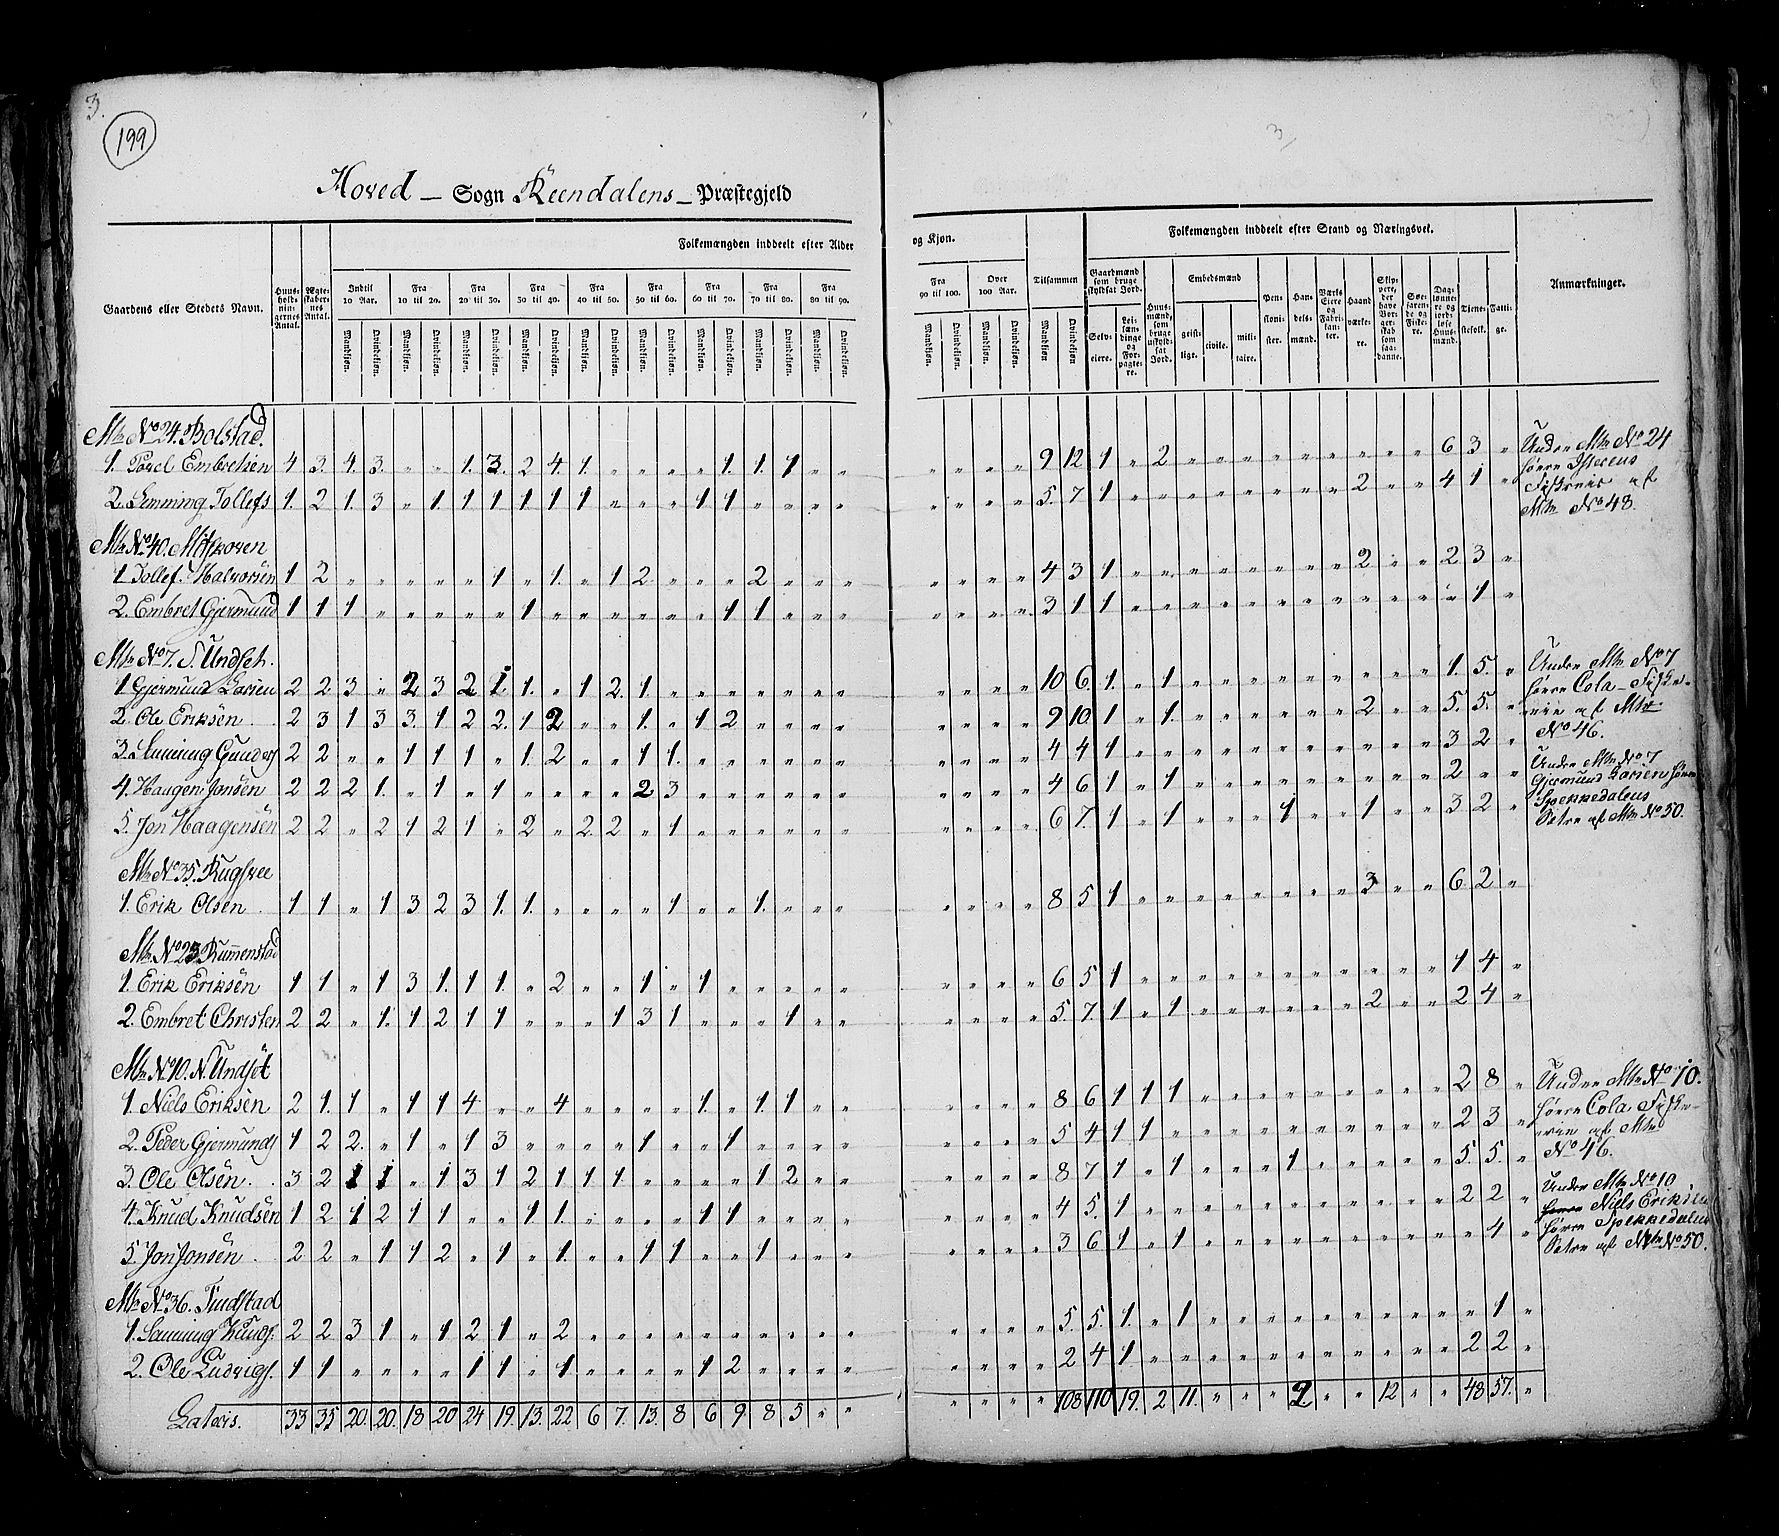 3.
199
3
Hoved – Sogn Reendalens – Præstegjeld
Gaardens eller Stedets Navn.
Huus-holdningernes Antal.
Ægteskabernes Antal.
Folkemængden inddeelt efter Alder
og Kjøn.
Indtil 10 Aar.
Fra 10 til 20.
Fra 20 til 30.
Fra 30 til 40.
Fra 40 til 50.
Fra 50 til 60.
Fra 60 til 70.
Fra 70 til 80.
Fra 80 til 90.
Fra 90 til 100.
Over 100 Aar.
Tilsammen
Mandkjøn. Qvindekjøn.
Folkemængden inddeelt efter Stand og Næringsvei.
Gaardmænd som bruge skyldsat Jord.
Selveiere.
Leilændinge og Forpagtere.
Huusmænd, som bruge uskyldsat Jord.
Embedsmænd
geistlige.
civile.
militaire.
Pensionister.
Handelsmænd.
Værks Eiere og Fabrikanter.
Haandværkere.
Skippere, der have Borgerskab som saadanne.
Søefarende og Fiskere.
Daglønnere og jordløse Huusmænd.
Tjenestefolk.
Fattige.
Anmærkninger.
Mtr No 24. Bolstad.
1. Poul Embretsen 4 3. 4. 3. „ „ 1. 3. 2 4 1. „ „ „ „ 1. 1. 1 „ „ „ „ „ „ 9 12 1 „ 2 „ „ „ „ „ „ „ „ „ 6 3 „
2. Lemming Tollefs 1. 2 1. 3 „ 1. 1 1 1 1 1 „ „ „ 1 1 „ „ „ „ „ „ „ „ 5. 7 1 „ „ „ „ „ „ „ „ 2 „ „ 4 1 „
Under Mtr No 24
høere Isterens
Fiskerie af
Mtr No 48.
Mtr No 40. Moskoven
1 Tollef Halvorsen 1 2 „ „ „ „ „ 1 „ 1. „ 1 2 „ „ „ 2 „ „ „ „ „ „ „ 4 3 1 „ „ „ „ „ „ „ „ 2 „ „ 2 3 „
2. Embret Gjermund 1 1 1 „ „ „ „ „ 1 „ „ „ „ „ „ 1 1 „ „ „ „ „ „ „ 3 1 1 „ „ „ „ „ „ „ „ „ „ „ „ 1 „
Mtr No 7. S. Undset.
1. Gjermund Larsen 2 2 3 „ 2 3 2 1 1. „ 1 2 1. „ „ „ „ „ „ „ „ „ „ „ 10 6. 1. „ 1 „ „ „ „ „ „ „ „ „ 1. 5. „
2. Ole Eriksen 2 3 1 3 3. 1 2 2. 1 2 „ „ 1. „ 1 2 „ „ „ „ „ „ „ „ 9 10. 1 „ 1. „ „ „ „ „ „ 2 „ „ 5. 5. „
3. Lemming Gunders 2 2 „ „ 1 1 1 „ 1. 2 „ „ 1 1. „ „ „ „ „ „ „ „ „ „ 4 4 1 „ „ „ „ „ „ „ „ „ „ „ 3 2 „
4. Haagen Jonsen 2 2 2 1. „ 1 „ 1 „ „ „ „ 2 3 „ „ „ „ „ „ „ „ „ „ 4 6 1 „ 1 „ „ „ „ „ „ „ „ „ 2 „ „
5. Jon Haagensen 2 2 „ 2 1 2 1 „ 2 „ 2 2 „ 1 „ „ „ „ „ „ „ „ „ „ 6 7. 1 „ 1 „ „ „ 1 „ „ 1 „ „ 3 2 „
Under Mtr No 7
høere Cola – Fiske-
rie af Mtr
No 46.
Under Mtr No 7
Gjermund Larsen høere
Spekkedalens
Sætre af Mtr No 50.
Mtr No 35. Rugsvee
1. Erik Olsen 1 1 „ 1 3 2 3 1. 1. „ „ „ „ 1 „ „ 1. „ „ „ „ „ „ „ 8 5 1 „ „ „ „ „ „ „ „ 3 „ „ 6 2 „
Mtr No 23. Rummenstad
1. Erik Eriksen 1 1 „ 1 3 1. 1 1. „ 2 „ „ 1 „ 1 „ „ „ „ „ „ „ „ „ 6 5 1 „ „ „ „ „ „ „ „ „ „ „ 1 4 „
2. Embret Christen 2 2 „ 1. 1 2 1 1 „ „ „ 1 3 1 „ „ „ 1 „ „ „ „ „ „ 5. 7. 1 „ 1 „ „ „ „ „ „ 2 „ „ 2 4 „
Mtr No 10. N. Undset
1. Niels Eriksen 2 1. 1 „ 1 1 4 „ „ 4 „ „ „ „ 1. „ 1. 1 „ „ „ „ „ „ 8 6 1 1 1 „ „ „ „ „ „ „ „ „ 2 8 „
2. Peder Gjermunds 1 2 2. „ 1 „ 1 3 „ „ „ „ 1 „ „ 1 „ „ „ „ „ „ „ „ 5 4 1 1 „ „ „ „ „ „ „ „ „ „ 2 3 „
3. Ole Olsen 3 2 1 1 „ 1 3 1 2 1 1 1. „ „ „ „ 1 2 „ „ „ „ „ „ 8 7 1 „ 1 „ „ „ 1 „ „ „ „ „ 5. 5. „
4. Knud Knudsen 1 2 1 2 1 1 „ „ 1. 1. „ „ „ „ 1 1 „ „ „ „ „ „ „ „ 4 5. 1 „ „ „ „ „ „ „ „ „ „ „ 2 2 „
5. Jon Jonsen 2 2 „ 1 1 2 „ 1 „ 1. „ „ 1 1 „ „ 1 „ „ „ „ „ „ „ 3 6 1 „ 1 „ „ „ „ „ „ „ „ „ „ 4 „
Under Mtr No 10.
høere Cola Fiske-
rie af Mtr
No 46.
Under Mtr No 10
høere Niels Eriksen
høere Spekkedalens
Sætre af Mtr No 50.
Mtr No 36. Findstad
1. Lemming Knuds. 2 2 3 1 „ 1 2 1 „ 2 „ „ „ „ „ „ „ „ „ „ „ „ „ „ 5. 5. 1. „ 1 „ „ „ „ „ „ „ „ „ „ 1 „
2. Ole Ludvigs. 1 1 „ „ „ „ 1 1 „ 1 „ „ „ „ 1 2 „ „ „ „ „ „ „ „ 2 4 1 „ „ „ „ „ „ „ „ „ „ „ 2 2 „
Lateris. 33 35 20. 20. 18 20 24 19. 13. 22 6 7. 13. 8 6 9. 8 5 „ „ „ „ „ „ 108 110 19. 2 11. „ „ „ 2 „ „ 12 „ „ 48 57. „